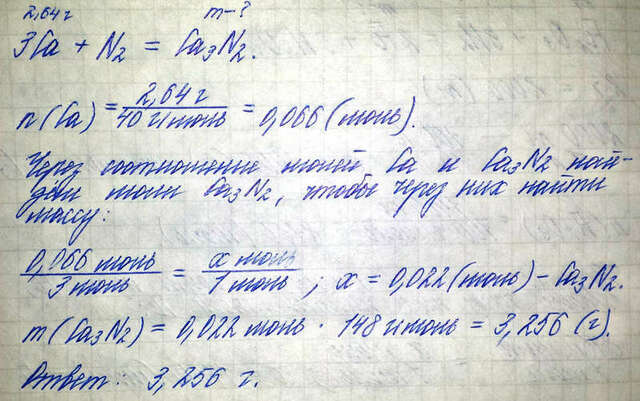 2,64 г m-?
3Ca + N2 = Ca3N2.
n(Ca) = 2,64 г / 40 г/моль = 0,066 (моль).
Через соотношение молей Ca и Ca3N2 най-
дем моли Ca3N2, чтобы через них найти
массу:
0,066 моль / 3 моль = x моль / 1 моль ; x = 0,022 (моль) - Ca3N2.
m(Ca3N2) = 0,022 моль · 148 г/моль = 3,256 (г).
Ответ: 3,256 г.